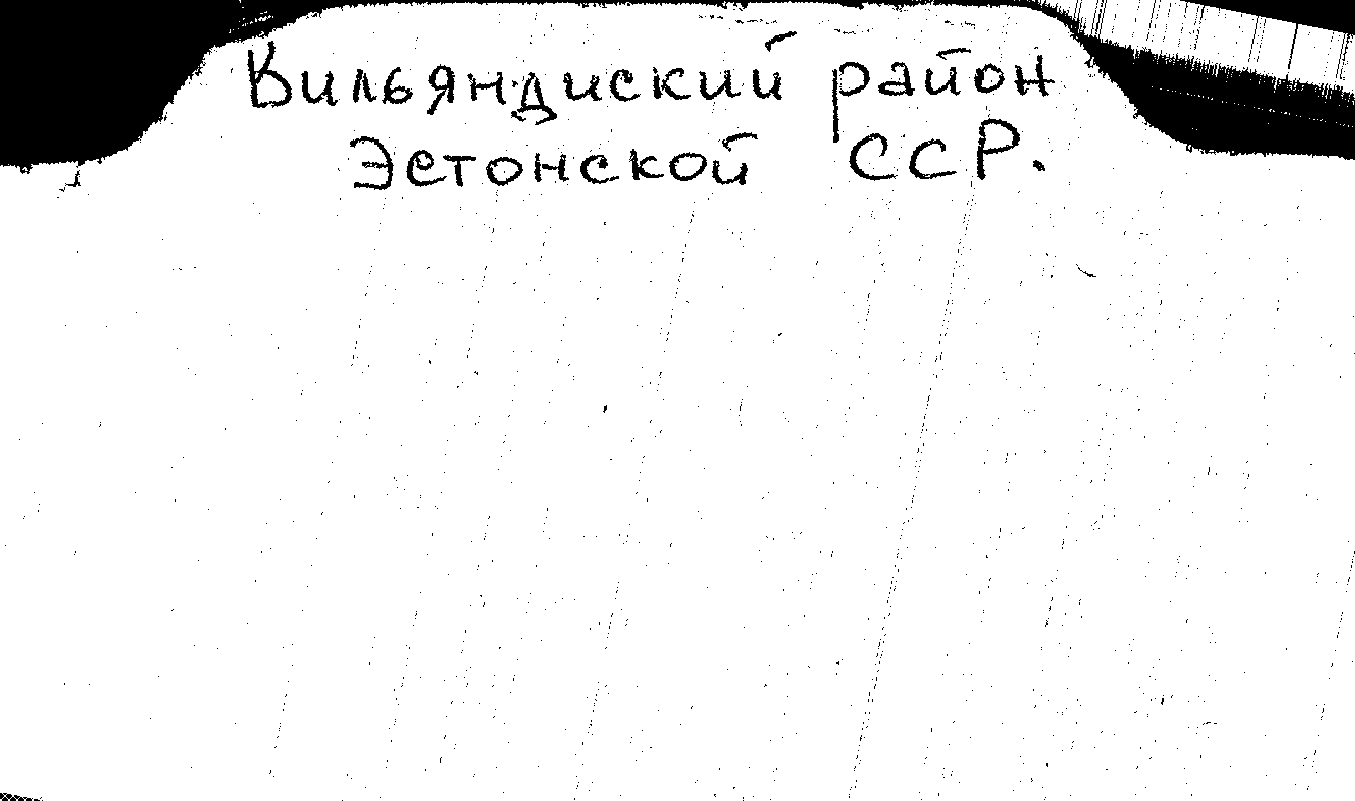 Вильяндиский район
Эстонской ССР.